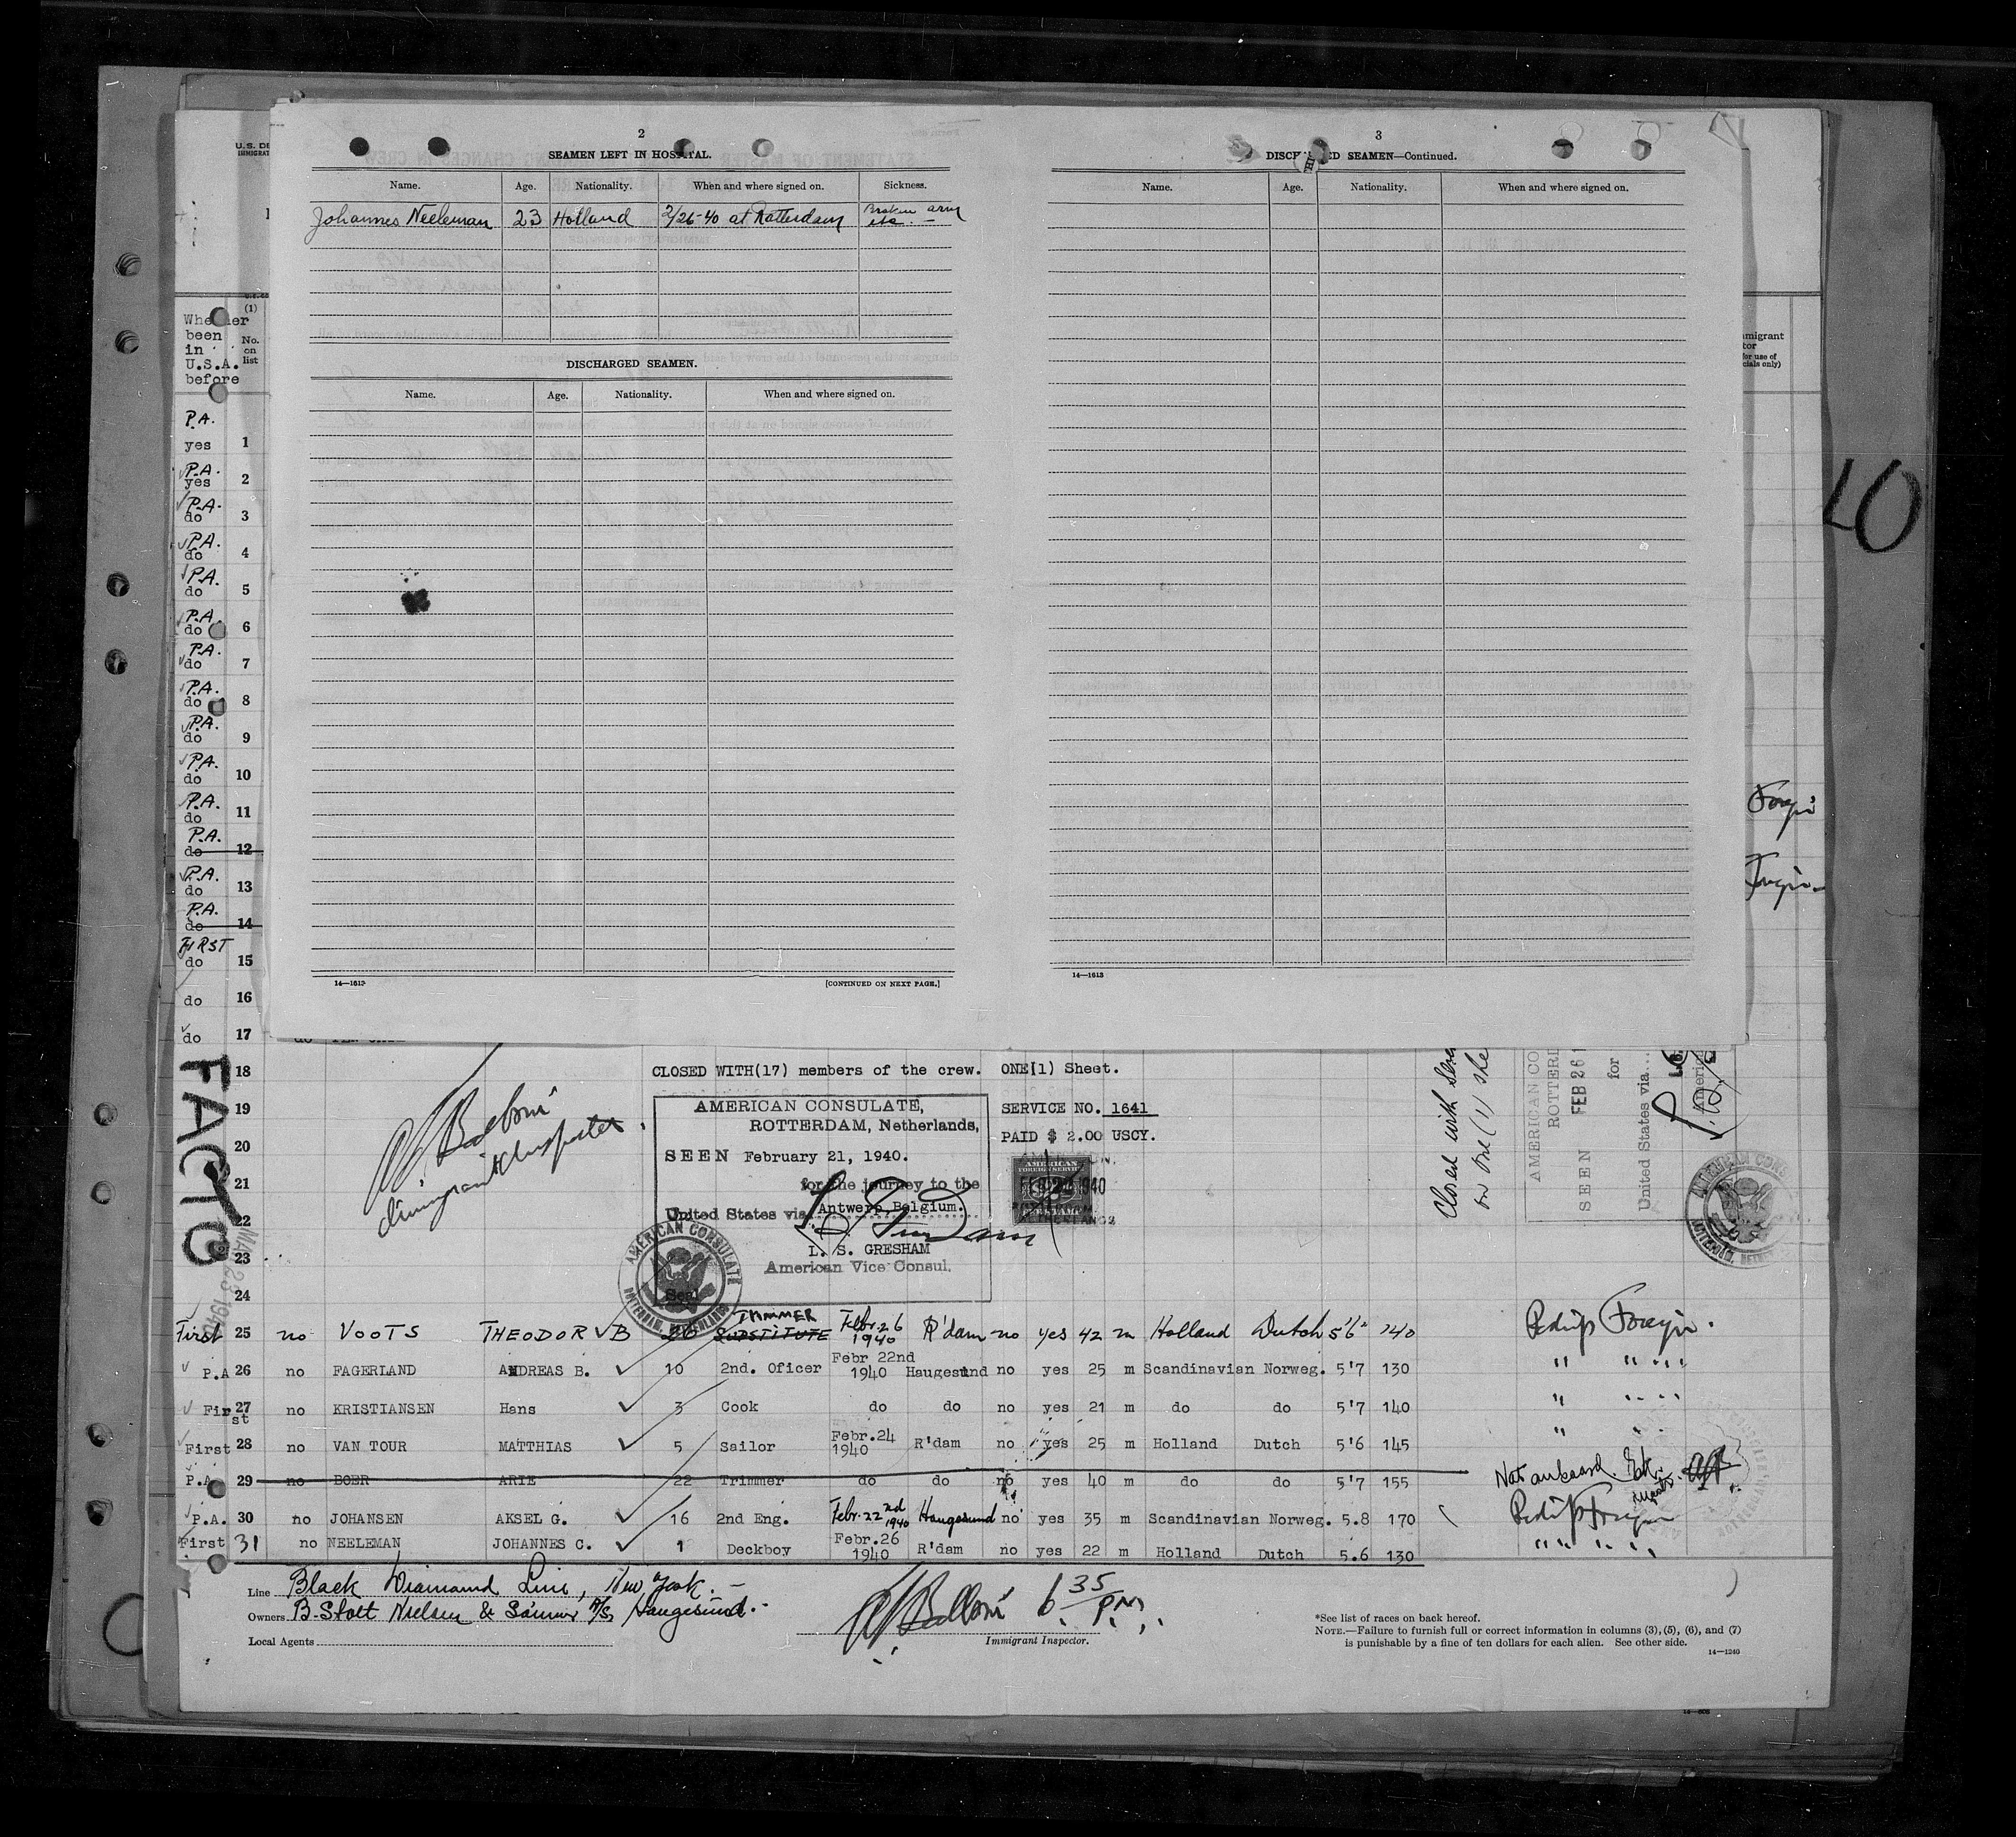 2
SEAMEN LEFT IN HOSPITAL.
Name. Age. Nationality. When and where signed on. Sickness.
Johannes Neeleman 23 Holland 2/26-40 at Rotterdam Broken arm etc.
DISCHARGED SEAMEN.
Name. Age. Nationality. When and where signed on.
14—1613 [CONTINUED ON NEXT PAGE.]
3
DISCH ED SEAMEN—Continued.
Name. Age. Nationality. When and where signed on.
14—1613
10
U.S. DE
IMMIGRAT
(1)
Whether been in U.S.A. before
No. on list
mmigrant
tor
for use of
cials only)
P.A. yes 1
P.A. yes 2
P.A. do 3
P.A. do 4
P.A. do 5
P.A. do 6
P.A. do 7
P.A. do 8
P.A. do 9
P.A. do 10
P.A. do 11
P.A. do 12
P.A. do 13
P.A. do 14
FIRST do 15
do 16
do 17
18
19
20
21
22
23
24
FACTO
CLOSED WITH(17) members of the crew. ONE(1) Sheet.
AMERICAN CONSULATE,
ROTTERDAM, Netherlands,
SEEN February 21, 1940.
for the journey to the
United States via Antwerp, Belgium.
L. S. GRESHAM
American Vice Consul.
Seal
AMERICAN CONSULATE
SERVICE NO. 1641
PAID $ 2.00 USCY.
AMERICAN
FOREIGN SERVICE
Immigrant Inspector.
Closed with Seven
on one (1) she
AMERICAN CO
ROTTERD
SEEN FEB 26 1
for
United States via...
First 25 no VOOTS THEODOR B 26 SUBSTITUTE TRIMMER Febr. 26 1940 R'dam no yes 42 m Holland Dutch 5'6" 140 Foreign.
P.A 26 no FAGERLAND ANDREAS B. 10 2nd. Oficer Febr 22nd 1940 Haugesund no yes 25 m Scandinavian Norweg. 5'7 130 " " " "
First 27 no KRISTIANSEN Hans 3 Cook do do no yes 21 m do do 5'7 140 " " " "
First 28 no VAN TOUR MATTHIAS 5 Sailor Febr.24 1940 R'dam no yes 25 m Holland Dutch 5'6 145 " "
P.A. 29 no BOER ARIE 22 Trimmer do do no yes 40 m do do 5'7 155 Not on board.
P.A. 30 no JOHANSEN AKSEL G. 16 2nd Eng. Febr. 22nd 1940 Haugesund no yes 35 m Scandinavian Norweg. 5.8 170 Foreign
First 31 no NEELEMAN JOHANNES C. 1 Deckboy Febr.26 1940 R'dam no yes 22 m Holland Dutch 5.6 130 " " " "
Line Black Diamond Line, New York.
Owners B. Stolt Nielsen & Sønner A/S, Haugesund.
Local Agents
6 35 PM
Immigrant Inspector.
*See list of races on back hereof.
NOTE.—Failure to furnish full or correct information in columns (3), (5), (6), and (7)
is punishable by a fine of ten dollars for each alien. See other side.
14—1240